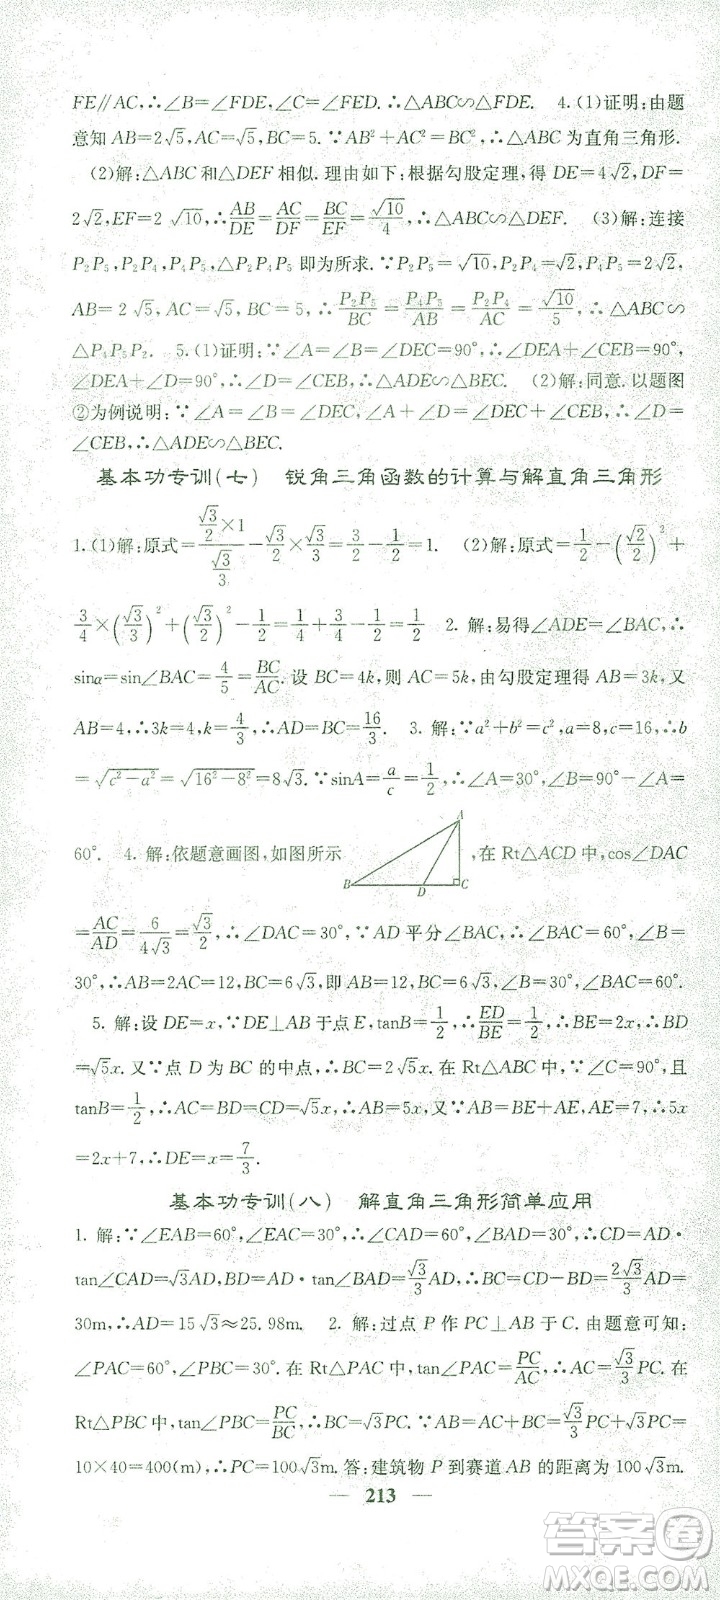 FE∥AC,∴∠B=∠FDE,∠C=∠FED.∴△ABC∽△FDE. 4.(1)证明:由题
意知 AB=2√5,AC=√5,BC=5.∵AB²+AC²=BC²,∴△ABC为直角三角形.
(2)解:△ABC和△DEF相似.理由如下:根据勾股定理,得 DE=4√2,DF=
2√2,EF=2√10,∴AB/DE=AC/DF=BC/EF=√10/4,∴△ABC∽△DEF. (3)解:连接
P₂P₅,P₂P₄,P₄P₅,△P₂P₄P₅ 即为所求.∵P₂P₅=√10,P₂P₄=√2,P₄P₅=2√2,
AB=2√5,AC=√5,BC=5,∴P₂P₅/BC=P₄P₅/AB=P₂P₄/AC=√10/5,∴△ABC∽
△P₄P₅P₂. 5.(1)证明:∵∠A=∠B=∠DEC=90°,∴∠DEA+∠CEB=90°.
∵∠DEA+∠D=90°,∴∠D=∠CEB,∴△ADE∽△BEC. (2)解:同意.以题图
②为例说明:∵∠A=∠B=∠DEC,∠A+∠D=∠DEC+∠CEB,∴∠D=
∠CEB,∴△ADE∽△BEC.
基本功专训(七) 锐角三角函数的计算与解直角三角形
1.(1)解:原式=(√3/2×1)/(√3/3)-√3/2×√3/3=3/2-1/2=1. (2)解:原式=1/2-(√2/2)²+
3/4×(√3/3)²+(√3/2)²-1/2=1/4+3/4-1/2=1/2. 2.解:易得∠ADE=∠BAC,∴
sinα=sin∠BAC=4/5=BC/AC.设 BC=4k,则 AC=5k,由勾股定理得 AB=3k,又
AB=4,∴3k=4,k=4/3,∴AD=BC=16/3. 3.解:∵a²+b²=c²,a=8,c=16,∴b
=√(c²-a²)=√(16²-8²)=8√3.∵sinA=a/c=1/2,∴∠A=30°,∠B=90°-∠A=
60°. 4.解:依题意画图,如图所示
A
B
D
C
,在 Rt△ACD 中,cos∠DAC
=AC/AD=6/4√3=√3/2,∴∠DAC=30°,∵AD 平分∠BAC,∴∠BAC=60°,∠B=
30°,∴AB=2AC=12,BC=6√3,即 AB=12,BC=6√3,∠B=30°,∠BAC=60°.
5.解:设 DE=x,∵DE⊥AB 于点 E,tanB=1/2,∴ED/BE=1/2,∴BE=2x,∴BD
=√5x.又∵点 D 为 BC 的中点,∴BC=2√5x.在 Rt△ABC 中,∵∠C=90°,
tanB=1/2,∴AC=BD=CD=√5x,∴AB=5x,又∵AB=BE+AE,AE=7,∴5x
=2x+7,∴DE=x=7/3.
基本功专训(八) 解直角三角形简单应用
1.解:∵∠EAB=60°,∠EAC=30°,∴∠CAD=60°,∠BAD=30°,∴CD=AD·
tan∠CAD=√3AD,BD=AD·tan∠BAD=√3/3AD,∴BC=CD-BD=2√3/3AD=
30m,∴AD=15√3≈25.98m. 2.解:过点 P 作 PC⊥AB 于 C.由题意可知:
∠PAC=60°,∠PBC=30°.在 Rt△PAC 中,tan∠PAC=PC/AC,∴AC=√3/3PC.在
Rt△PBC 中,tan∠PBC=PC/BC,∴BC=√3PC.∵AB=AC+BC=√3/3PC+√3PC=
10×40=400(m),∴PC=100√3m.答:建筑物 P 到赛道 AB 的距离为 100√3m.
— 213 —
答案圈
MXQE.COM